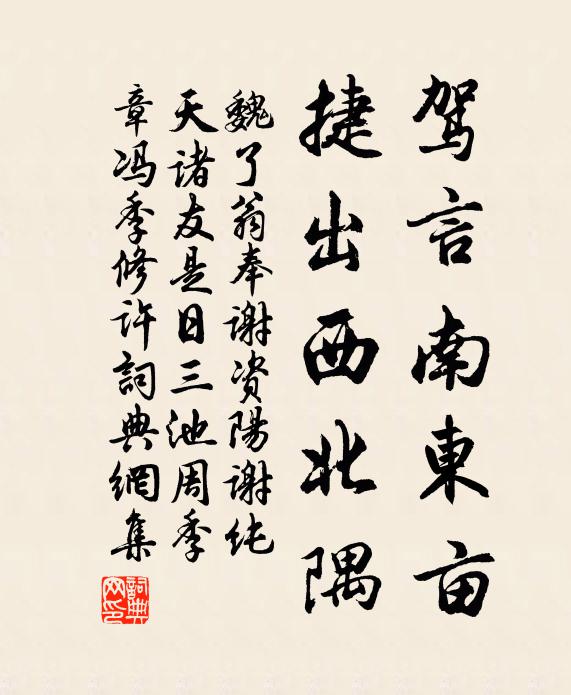 驾言南東亩
捷出西北隅
魏了翁奉谢资陽谢纯
天诸友是日三池周季
章冯季修许詞典網集
詞典网印